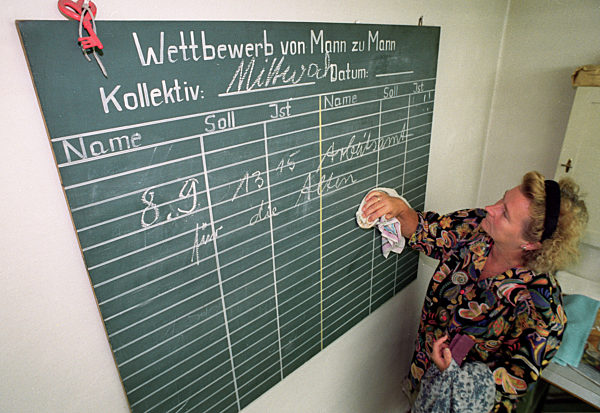 Wettbewerb von Mann zu Mann
Kollektiv: Mittwoch Datum:
Name Soll Ist Name Soll Ist
8.9 13 15 Arbeitsamt
für die Alten